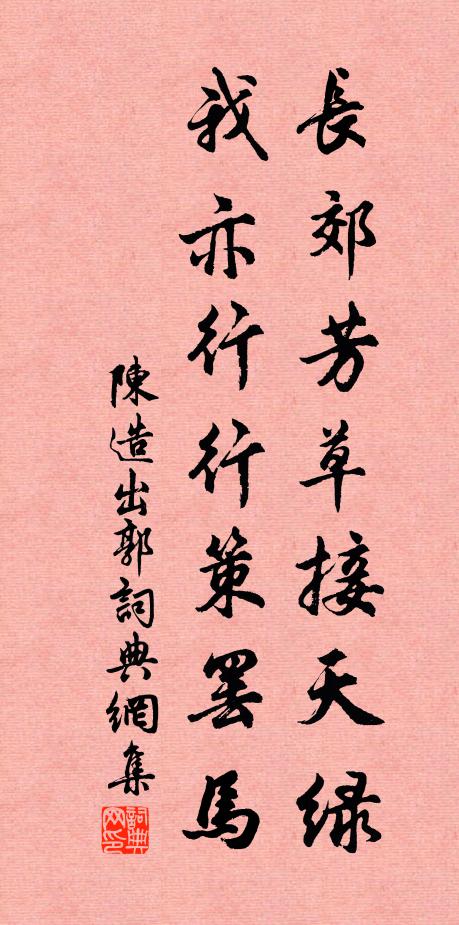 長郊芳草接天绿
我亦行行策罢馬
陳造出郭詞典網集
詞典网印